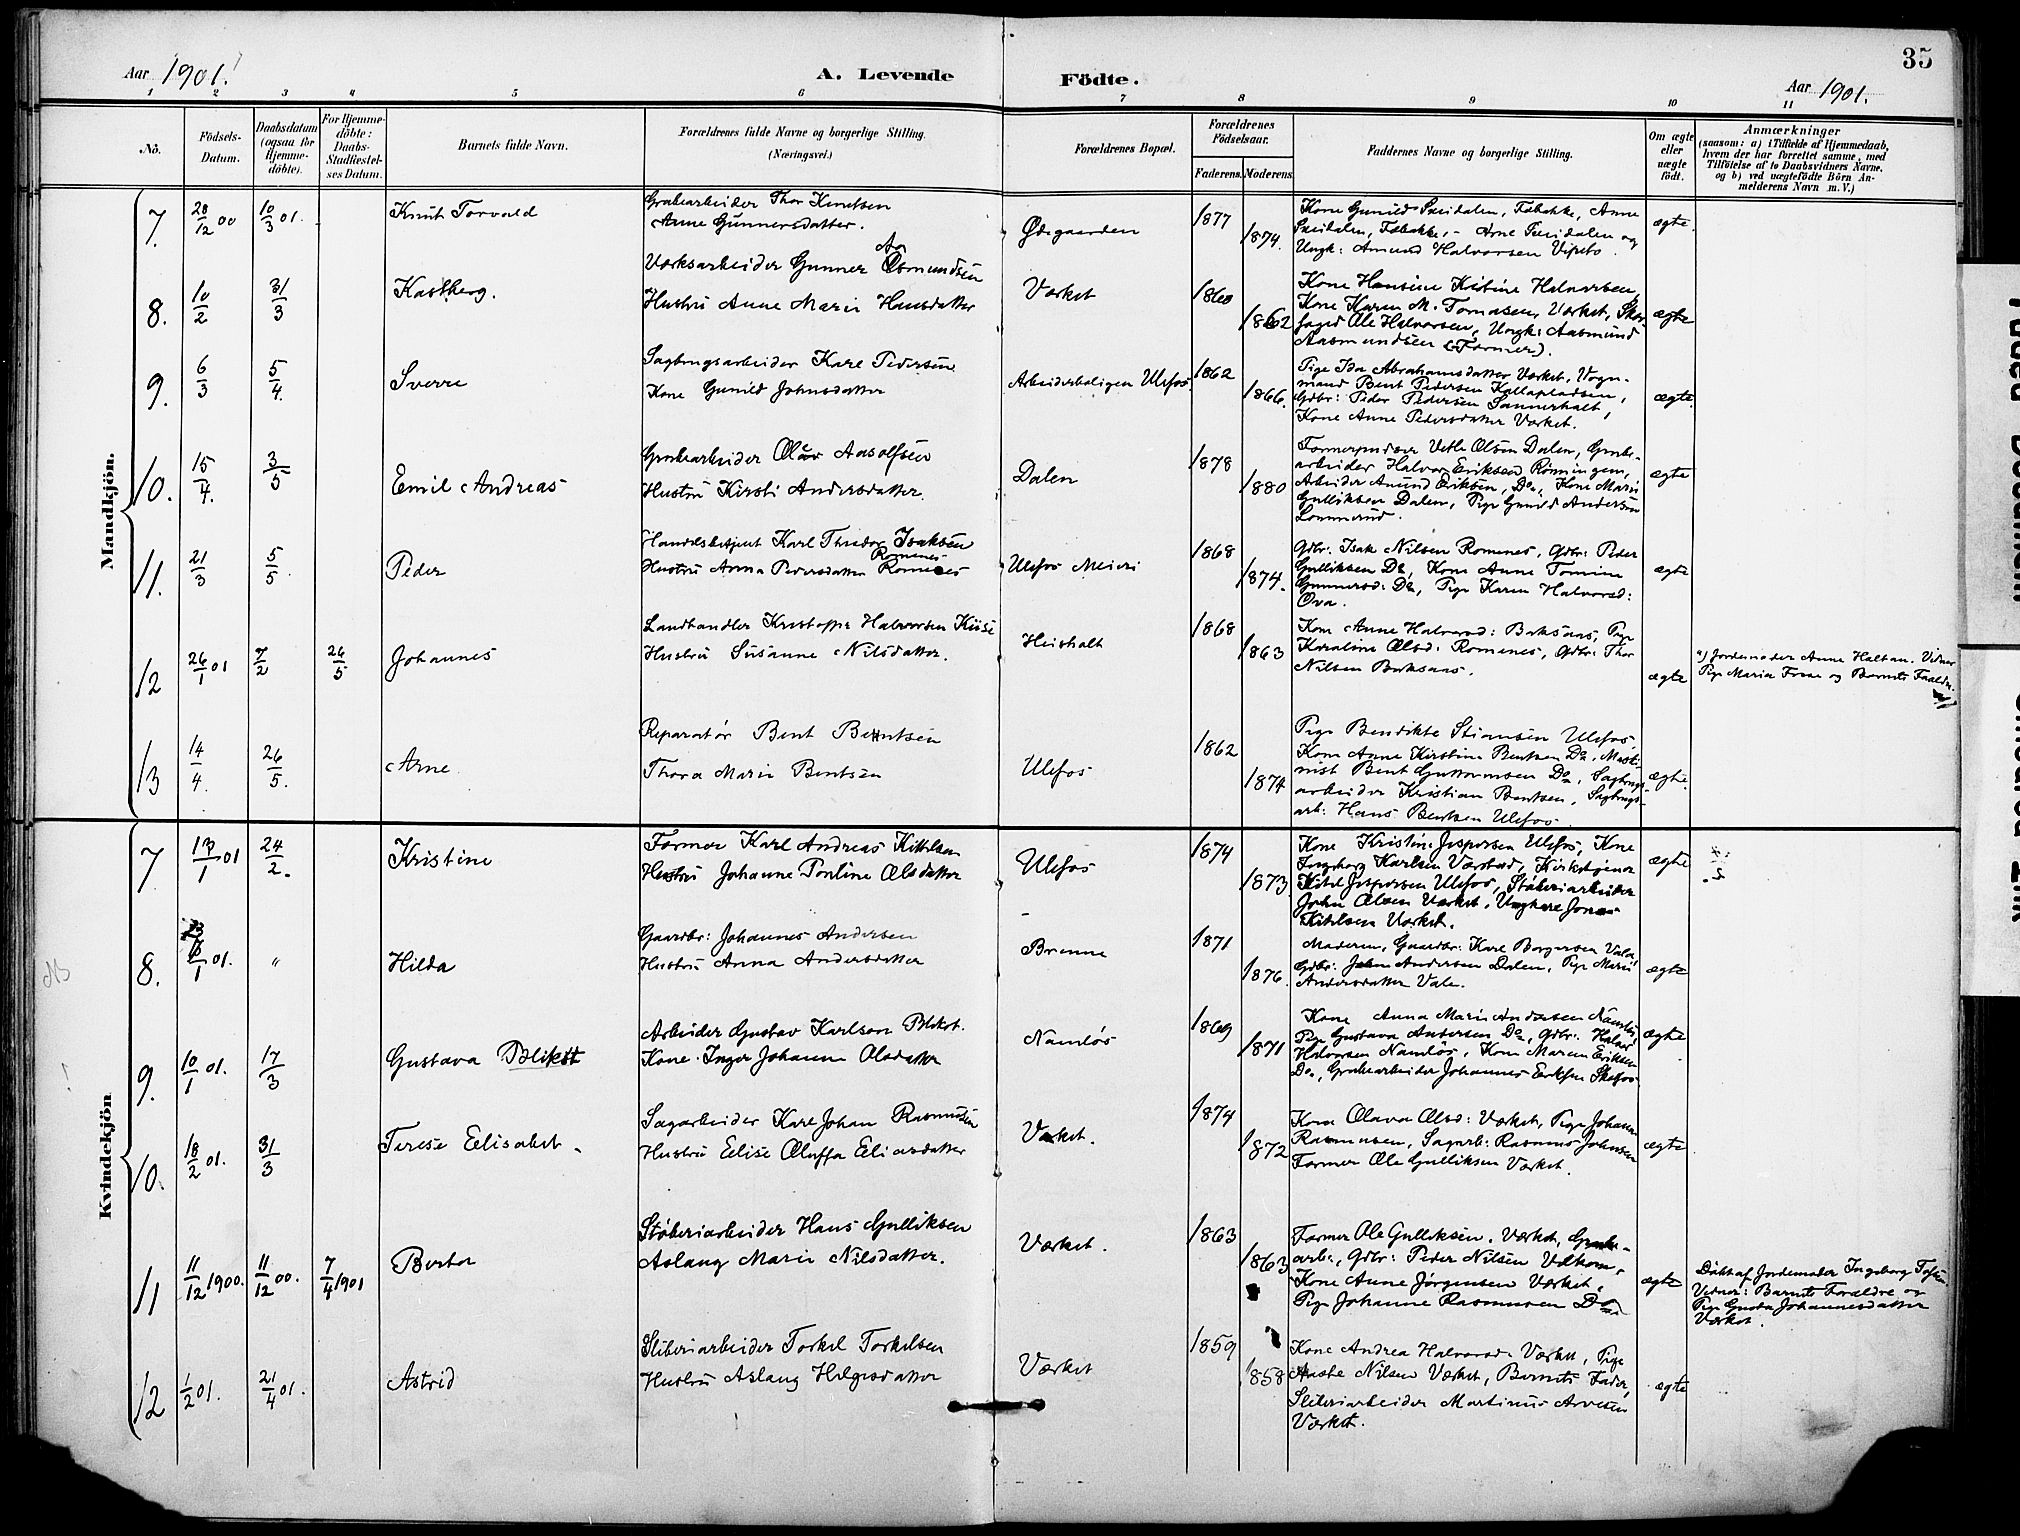 35
Aar 1901.
A. Levende
Födte.
Aar 1901.
1 2 3 4 5 6 7 8 9 10 11
No.
Födsels-
Datum.
Daabsdatum
(ogsaa for
Hjemme-
döbte).
For Hjemme-
döbte:
Daabs-
Stadfæstel-
ses Datum.
Barnets fulde Navn.
Forældrenes fulde Navne og borgerlige Stilling.
(Næringsvei.)
Forældrenes Bopæl.
Forældrenes
Födselsaar.
Faderens. Moderens.
Faddernes Navne og borgerlige Stilling.
Om ægte
eller
uægte
födt.
Anmærkninger
(saasom: a) i Tilfælde af Hjemmedaab,
hvem der har forrettet samme, med
Tilföielse af to Daabsvidners Navne.
og b) ved uægtefödte Börn An-
melderens Navn m. V.)
Mandkjön.
7. 28/12 00 10/3 01. Knut Torvald
Grubearbeider Thor Knutsen
Anne Gunnersdatter.
Ødegaarden 1877 1874.
Kone Gunild Sæidalen, Fæbakke, Anne
Ungk: Amund Halvorsen Vipeto.
ægte.
8. 10/2 31/3 Kastberg.
Værksarbeider Gunner Aasmundsen
Hustru Anne Marie Hansdatter
Værket 1860 1862
Kone Hansine Kristine Halvorsen,
Kone Karen M. Tomasen, Værket, Skov-
foged Ole Halvorsen, Ungk: Aasmund
Aasmundsen (Former).
ægte
9. 6/3 5/4. Sverre
Sagbrugsarbeider Karl Pedersen
Kone Gunild Johnsdatter
Arbeiderboligen Ulefos 1862 1866.
Pige Ida Abrahamsdatter Værket, Vogn-
mand Bent Pedersen Kallapladsen,
Gdbr: Peder Pedersen Sannerholt,
Kone Anne Pedersdatter Værket.
ægte.
10. 15/4. 3/5 Emil Andreas
Grubearbeider Olav Aasolfsen
Hustru Kirsti Andersdatter.
Dalen 1878 1880
Vetle Olsen Dalen, Grube-
arbeider Halvor Eriksen Rönningen,
Arbeider Amund Eriksen, Do, Kone Marie
Gulliksen Dalen, Pige Gunild Andersen
ægte
11. 21/3 5/5 Peder
Handelsbetjent Karl Theodor Isaksen
Romenes
Hustru Anna Pedersdatter Romenes
Ulefos Meieri 1868 1874.
Gdbr: Isak Nilsen Romenes, Gdbr: Peder
Gulliksen Do, Kone Anne Tomine
Gunnersd: Do, Pige Karen Halvorsd:
Ova.
ægte
12 26/1 01 7/2 26/5 Johannes
Landhandler Kristoffer Halvorsen Kiise
Hustru Susanne Nilsdatter.
Heisholt 1868 1863
Kone Anne Halvorsd: Baksaas, Pige
Karoline Olsd: Romenes, Gdbr: Thor
Nilsen Baksaas.
ægte
a) Jordemoder Anne Haltan. Vidner
Pige Maria Froee og Barnets Forældre.
13 14/4. 26/5. Arne
Reparatør Bent Bentsen
Thora Marie Bentsen
Ulefos 1862 1874
Pige Bendikte Stiansen Ulefos,
Kone Anne Kirstine Bentsen Do, Maski-
nist Bent Guttormsen Do, Sagbrugs-
arbeider Kristian Bentsen, Sagbrugs-
arb: Hans Bentsen Ulefos.
ægte.
Kvindekjön
7 13/1 01 24/2. Kristine
Former Karl Andreas Kittilsen
Hustru Johanne Pouline Olsdatter
Ulefos 1874 1873
Kone Kristine Jespersen Ulefos, Kone
Ingeborg Karlsen Værstad, Kirketjener
Kittil Jespersen Ulefos, Støberiarbeider
John Olsen Værket, Ungkare Jonas
Kittilsen Værket.
ægte
8. 01. " Hilda
Gaardbr: Johannes Andersen
Hustru Anna Andersdatter
Brenne 1871 1876.
Moderen, Gaardbr: Karl Borgersen Vala,
Gdbr: John Andersen Dalen, Pige Marie
Andersdatter Vala.
ægte
9. 10/1 01. 17/3 Gustava Blikst
Arbeider Gustav Karlson Blikst.
Kone Inger Johanne Olsdatter
Namløs 1869 1871
Kone Anna Marie Andersen Namløs,
Pige Gustava Andersen Do, Gdbr: Halvor
Halvorsen Namløs, Kone Maren Eriksen
Do, Grubearbeider Johannes Eriksen Skofos.
ægte
10. 18/2 01. 31/3 Terese Elisabet.
Sagarbeider Karl Johan Rasmusen
Hustru Elise Oluffa Eliasdatter
Værket. 1874 1872
Kone Olava Olsd: Værket, Pige Johanne
Rasmusen, Sagarb: Rasmus Johnsen
Former Ole Gulliksen Værket.
ægte
11 11/12 1900. 11/12 00. 7/4 1901 Berta
Støberiarbeider Hans Gulliksen
Aslaug Marie Nilsdatter.
Værket. 1863 1863
Former Ole Gulliksen, Værket, Grube-
arb:, Gdbr: Peder Nilsen Velkom,
Kone Anne Jørgensen Værket,
Pige Johanne Rasmusen Do
ægte
Döbt af Jordemoder Ingeborg
Vidner: Barnets Forældre og
Pige Gusta Johannesdatter
Værket.
12 1/2 01. 21/4 01. Astrid
Sliberiarbeider Torkel Torkelsen
Hustru Aslaug Helgesdatter
Værket 1859 1858
Kone Andrea Halvorsd: Værket, Pige
Aaste Nilsen Værket, Barnets Fader,
Sliberiarbeider Martinus Arvesen
Værket.
ægte